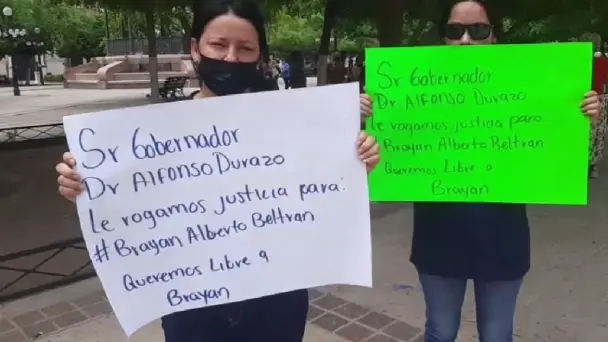 Sr Gobernador
Dr Alfonso Durazo
Le rogamos justicia para:
#Brayan Alberto Beltran
Queremos Libre a
Brayan
Sr Gobernador
Dr Alfonso Durazo
Le rogamos justicia para:
#Brayan Alberto Beltran
Queremos Libre a
Brayan